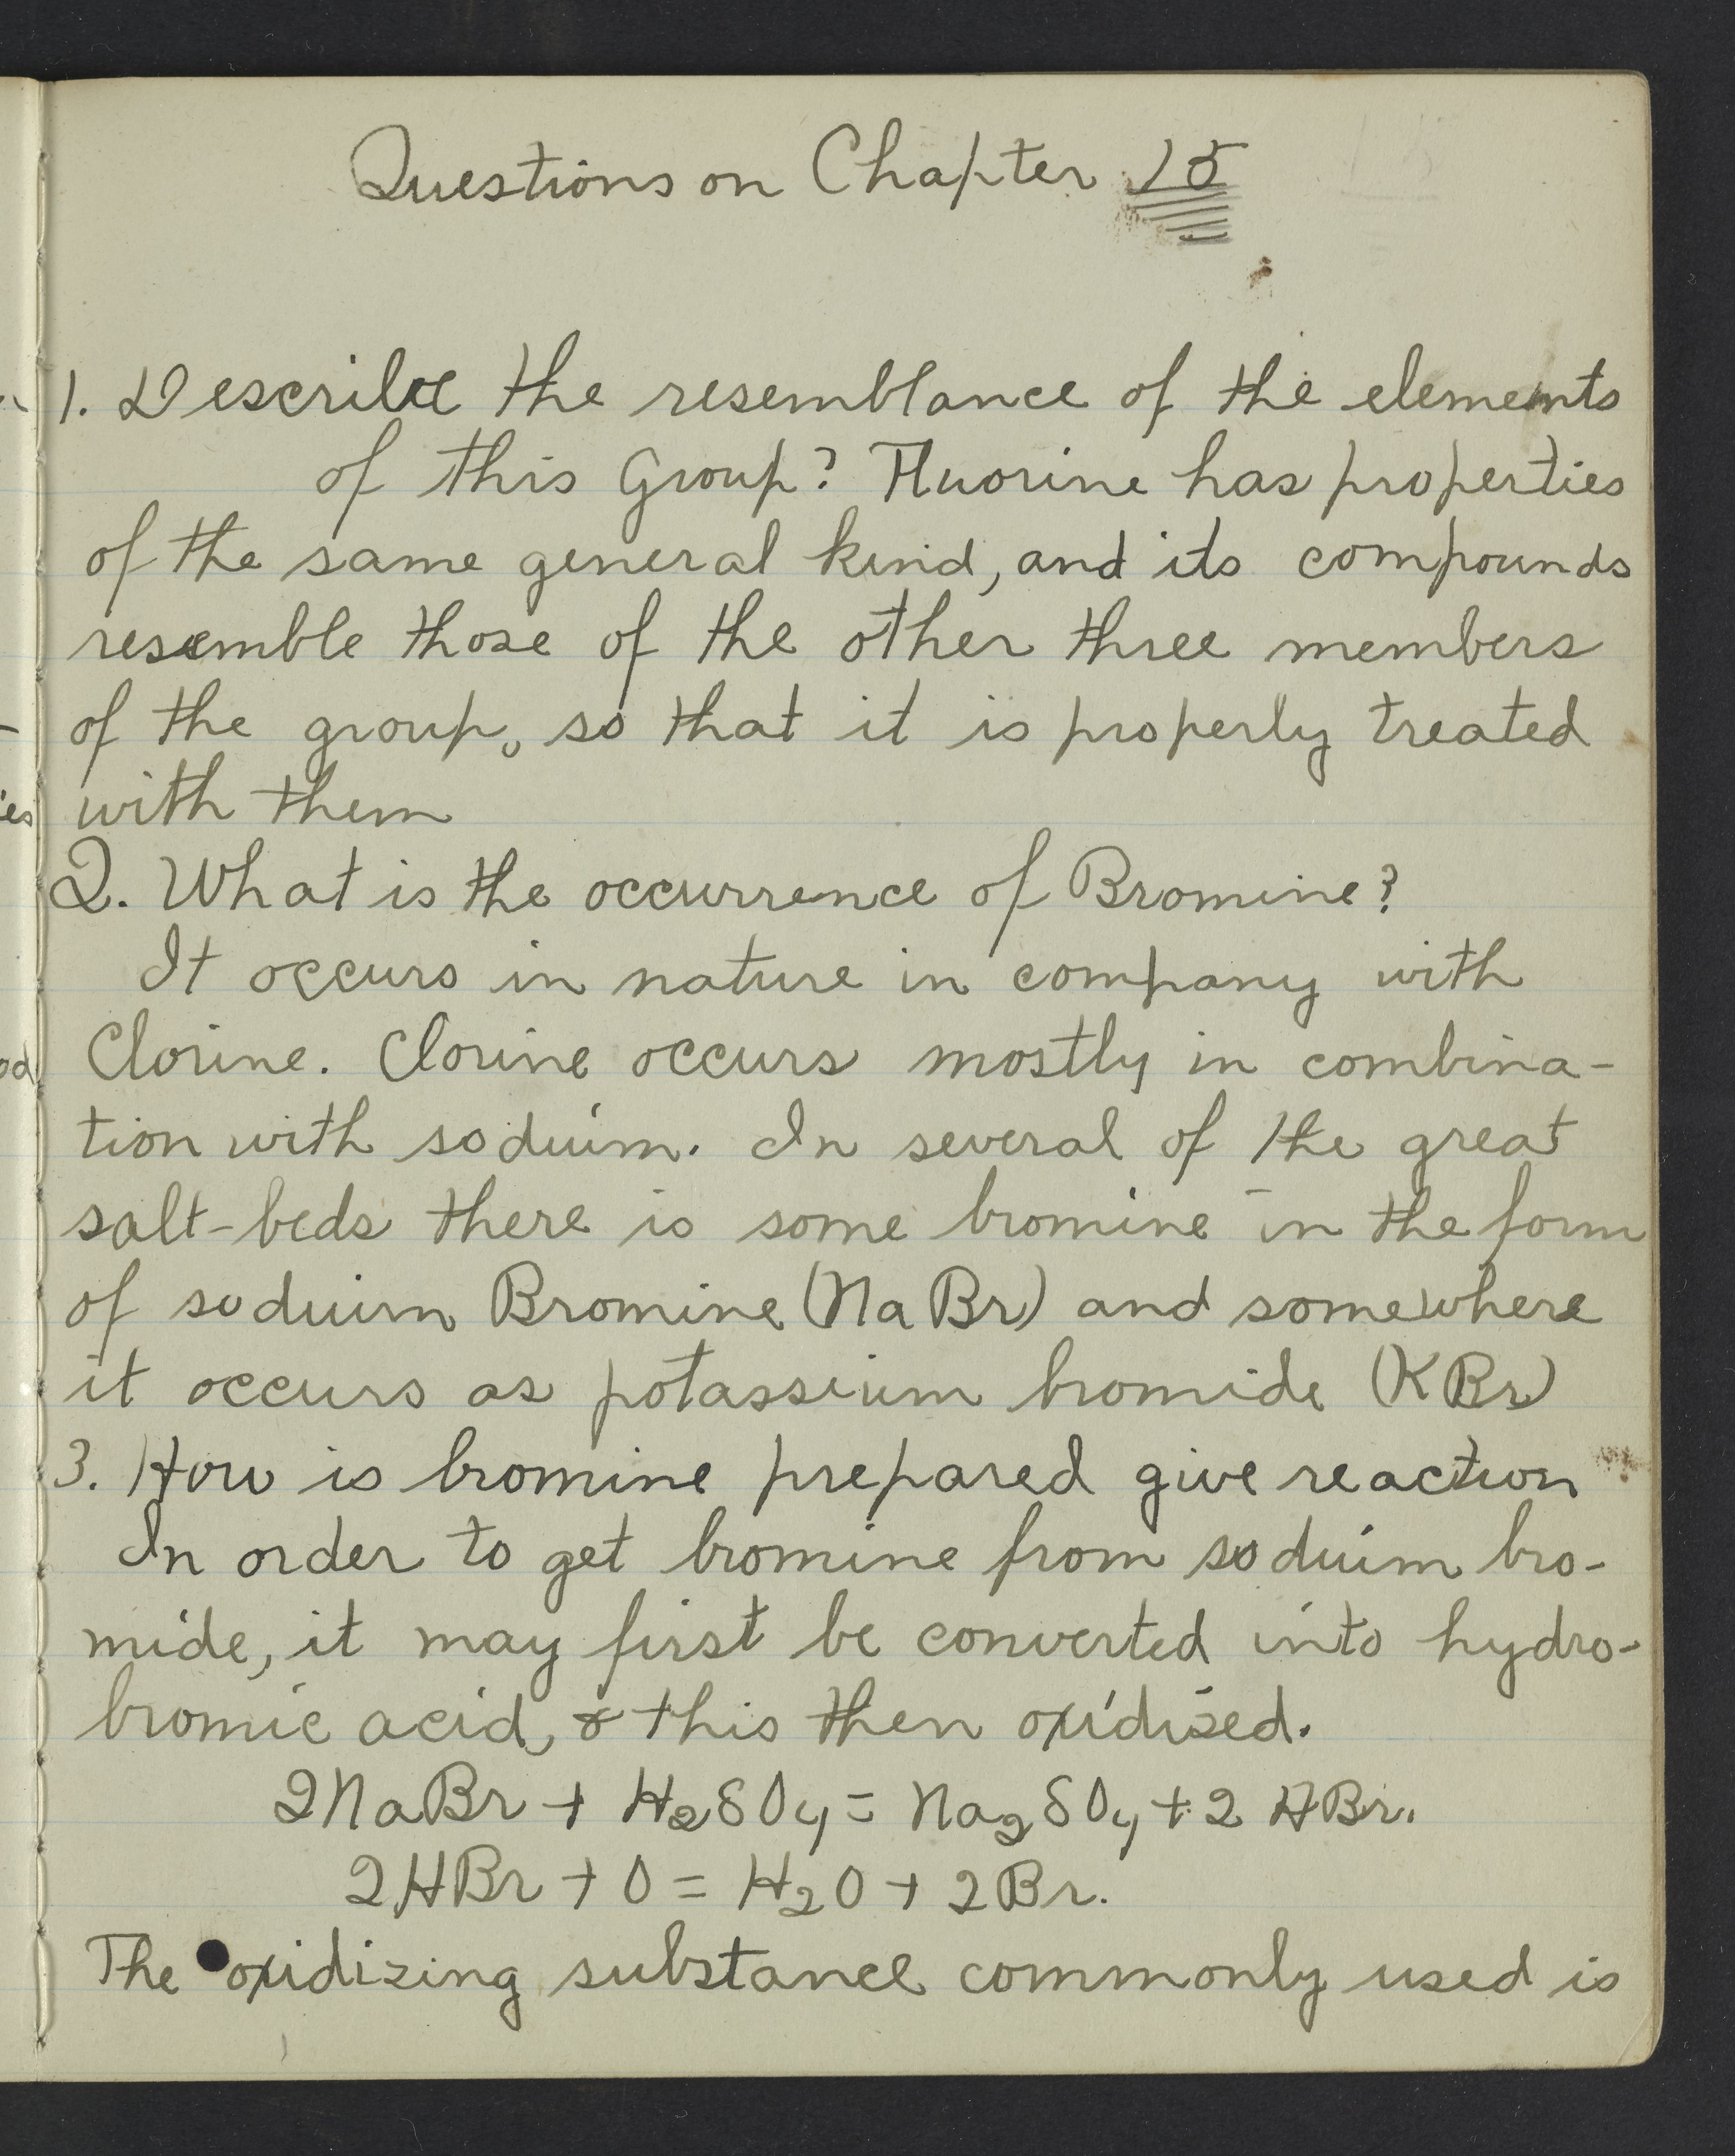 Questions on Chapter 15
1. Describe the resemblance of the elements
of this Group? Fluorine has properties
of the same general kind, and its compounds
resemble those of the other three members
of the group, so that it is properly treated
with them
2. What is the occurrence of Bromine?
It occurs in nature in company with
Clorine. Clorine occurs mostly in combina-
tion with soduim. In several of the great
salt-beds there is some bromine in the form
of soduim Bromine (NaBr) and somewhere
it occurs as potassium bromide (KBr)
3. How is bromine prepared give reaction
In order to get bromine from soduim bro-
mide, it may first be converted into hydro-
bromic acid, & this then oxidized.
2NaBr + H₂SO₄ = Na₂SO₄ + 2 HBr.
2HBr + O = H₂O + 2Br.
The oxidizing substance commonly used is